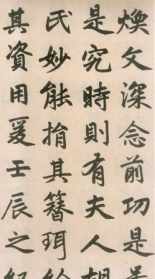 煥文深念前功是
是究時則有夫人胡
氏妙能捐其簪珥
其資用爰壬辰之